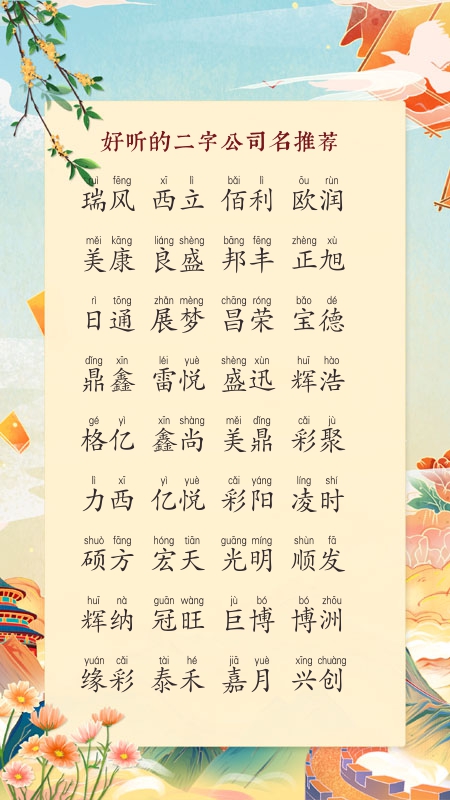 好听的二字公司名推荐
ruì fēng xī lì bǎi lì ōu rùn
瑞风 西立 佰利 欧润
měi kāng liáng shèng bāng fēng zhèng xù
美康 良盛 邦丰 正旭
rì tōng zhǎn mèng chāng róng bǎo dé
日通 展梦 昌荣 宝德
dǐng xīn léi yuè shèng xùn huī hào
鼎鑫 雷悦 盛迅 辉浩
gé yì xīn shàng měi dǐng cǎi jù
格亿 鑫尚 美鼎 彩聚
lì xī yì yuè cǎi yáng líng shí
力西 亿悦 彩阳 凌时
shuò fāng hóng tiān guāng míng shùn fā
硕方 宏天 光明 顺发
huī nà guān wàng jù bó bó zhōu
辉纳 冠旺 巨博 博洲
yuán cǎi tài hé jiā yuè xīng chuàng
缘彩 泰禾 嘉月 兴创